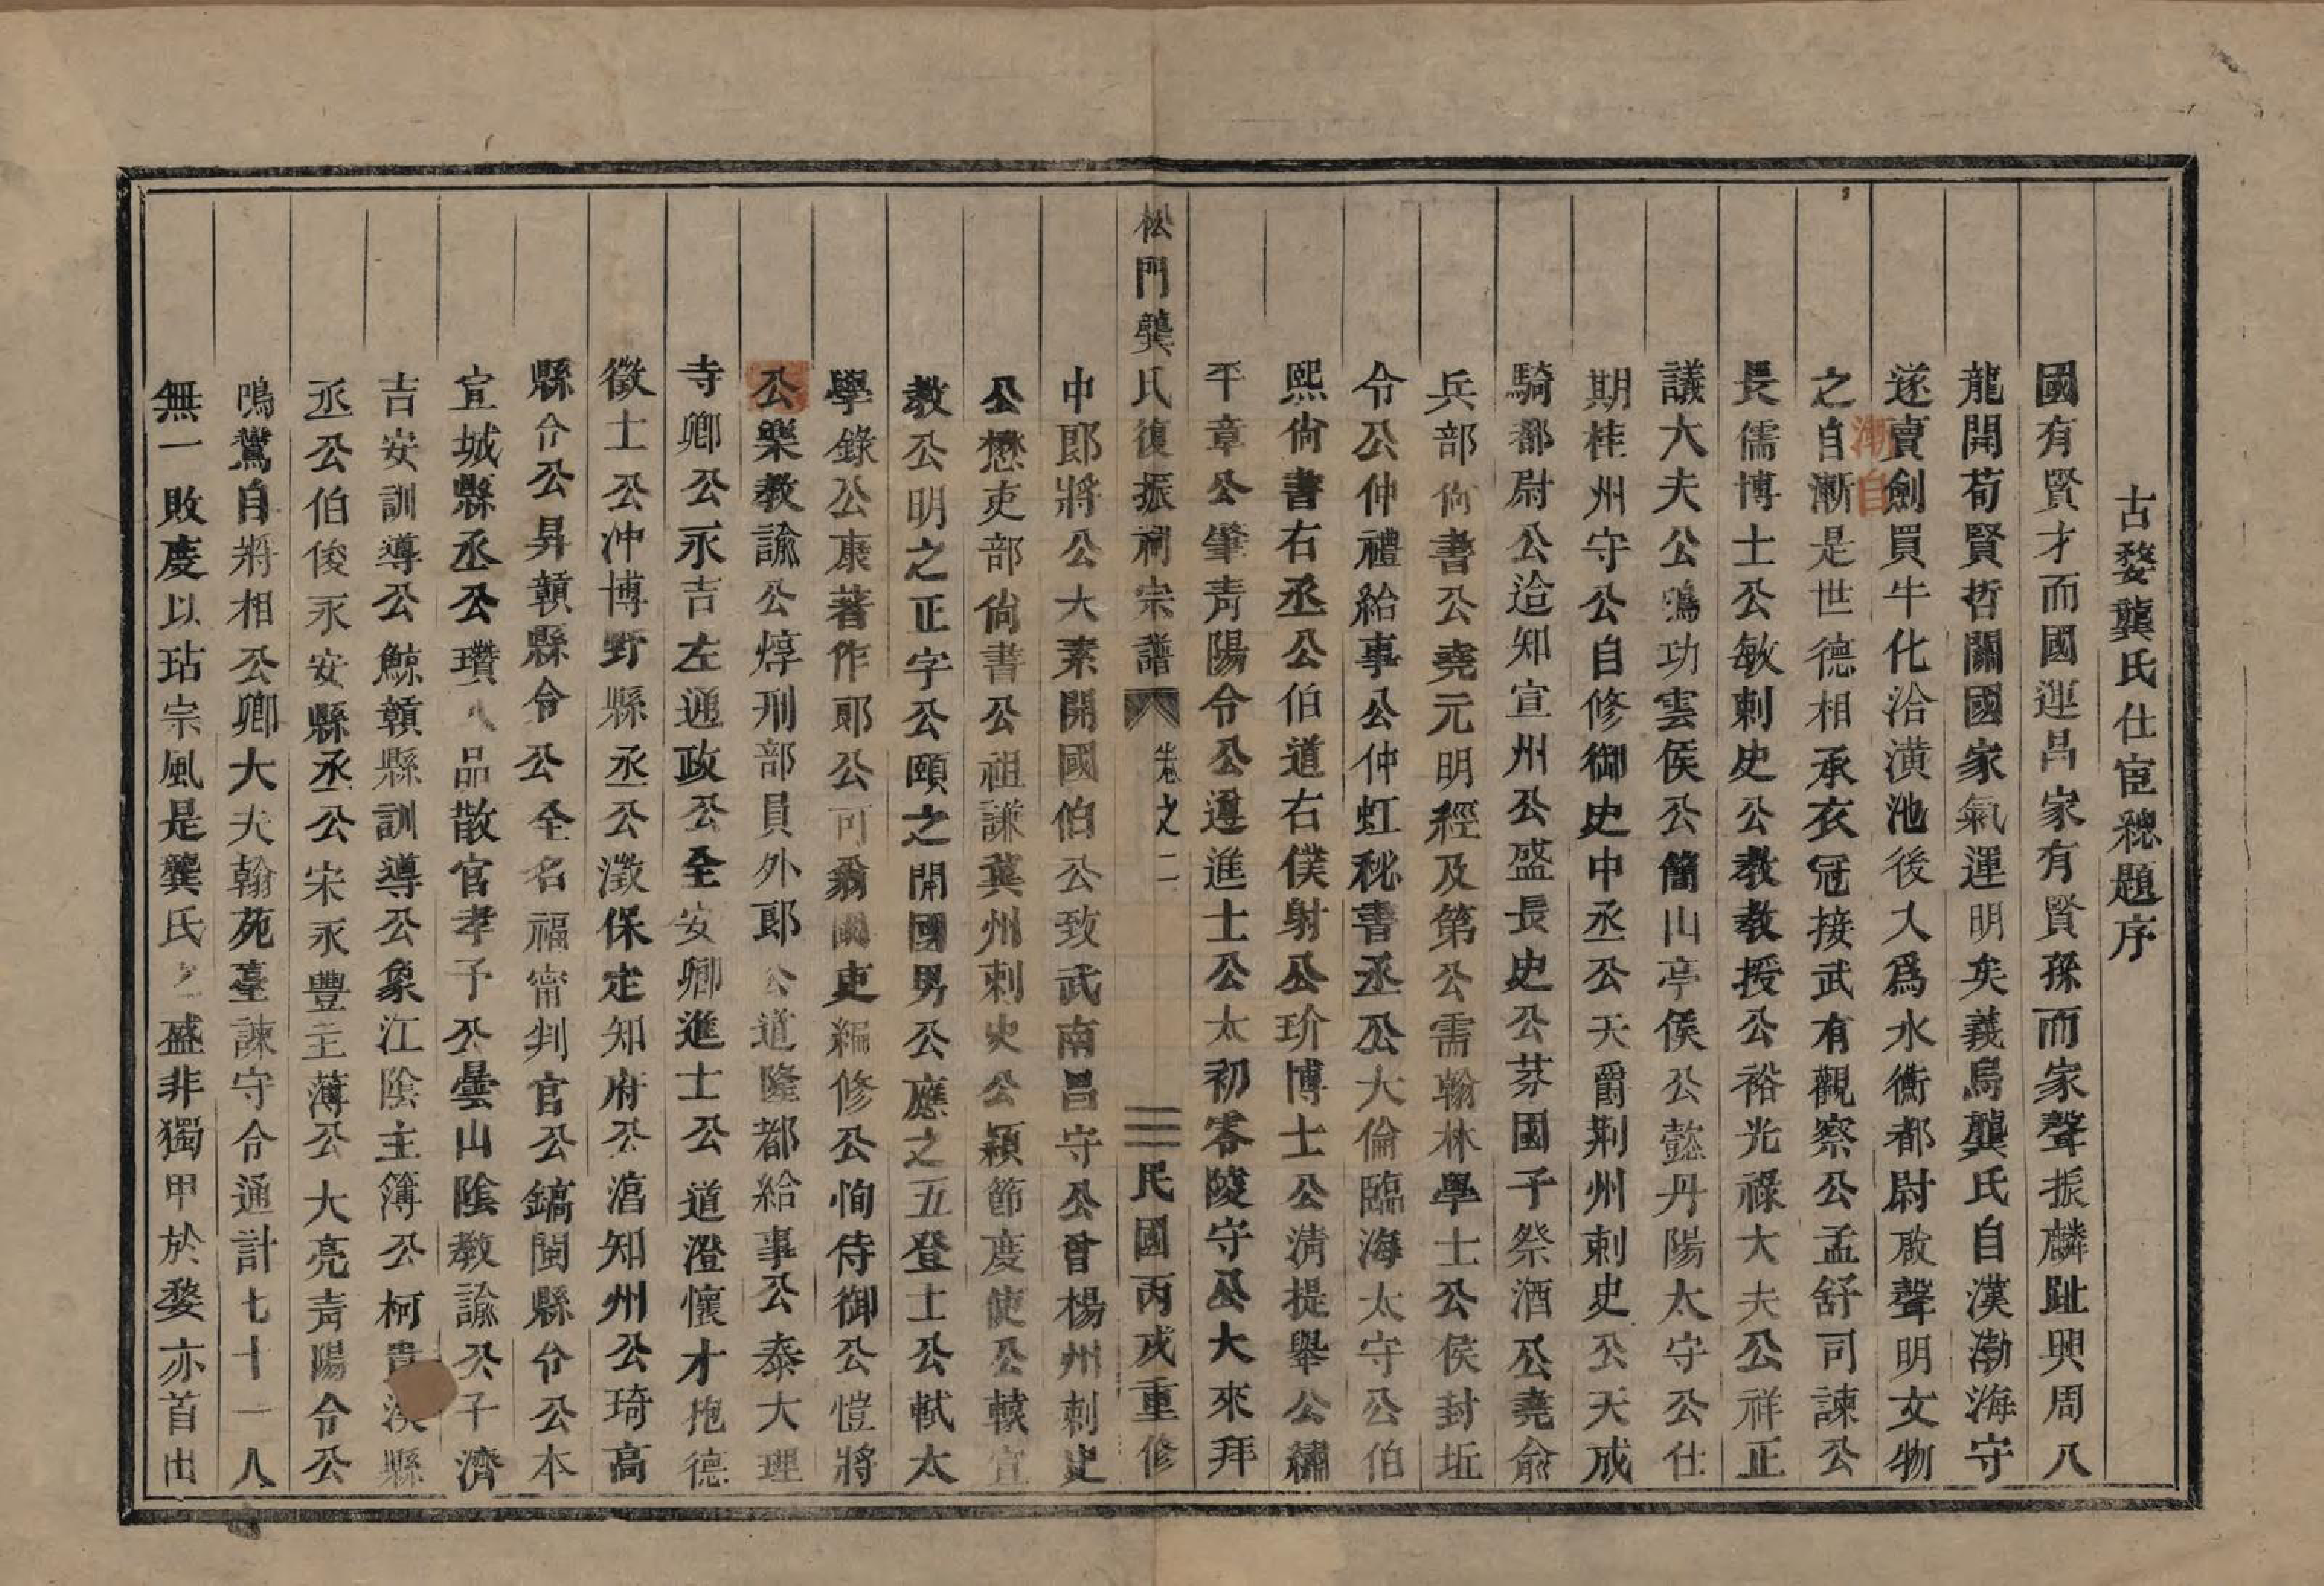 古婺龔氏仕宦總題序
國有賢才而國運昌家有賢孫而家聲振麟趾興周八
龍開荀賢哲關國家氣運明矣義烏龔氏自漢渤海守
遂賣劍買牛化洽潢池後人爲水衡都尉啟聲明文物
漸自
之自漸是世德相承衣冠接武有觀察公孟舒司諫公
長儒博士公敏刺史公教教授公裕光祿大夫公祥正
議大夫公鳴功雲侯公簡山亭侯公懿丹陽太守公仕
期桂州守公自修御史中丞公天爵荆州刺史公天成
騎都尉公迨知宣州公盛長史公芬國子祭酒公堯俞
兵部尙書公堯元明經及第公需翰林學士公侯封坵
令公仲禮給事公仲虹秘書丞公大倫臨海太守公伯
熙尙書右丞公伯道右僕射公玠博士公淸提舉公繡
平章公肇青陽令公遵進士公太初零陵守公大來拜
松門龔氏復振祠宗譜 卷之二 三 民國丙戌重修
中郎將公大素開國伯公致武南昌守公曾楊州刺史
公懋吏部尙書公祖謙冀州刺史公穎節度使公轅宣
教公明之正字公頤之開國男公應之五登士公軾太
學錄公康著作郎公可翁國史編修公恂侍御公愷將
公樂教諭公焞刑部員外郎公道隆都給事公泰大理
寺卿公永吉左通政公全安卿進士公道澄懷才抱德
徵士公沖博野縣丞公澂保定知府公滔知州公琦高
縣令公昇贛縣令公全名福甯判官公鎬閩縣令公本
宣城縣丞公瓚八品散官孝子公曇山陰教諭公子濟
吉安訓導公鯨贛縣訓導公象江陰主簿公柯貴溪縣
丞公伯俊永安縣丞公宋永豐主薄公大亮青陽令公
鳴鸞自將相公卿大夫翰苑臺諫守令通計七十一人
無一敗度以玷宗風是龔氏之盛非獨甲於婺亦首出